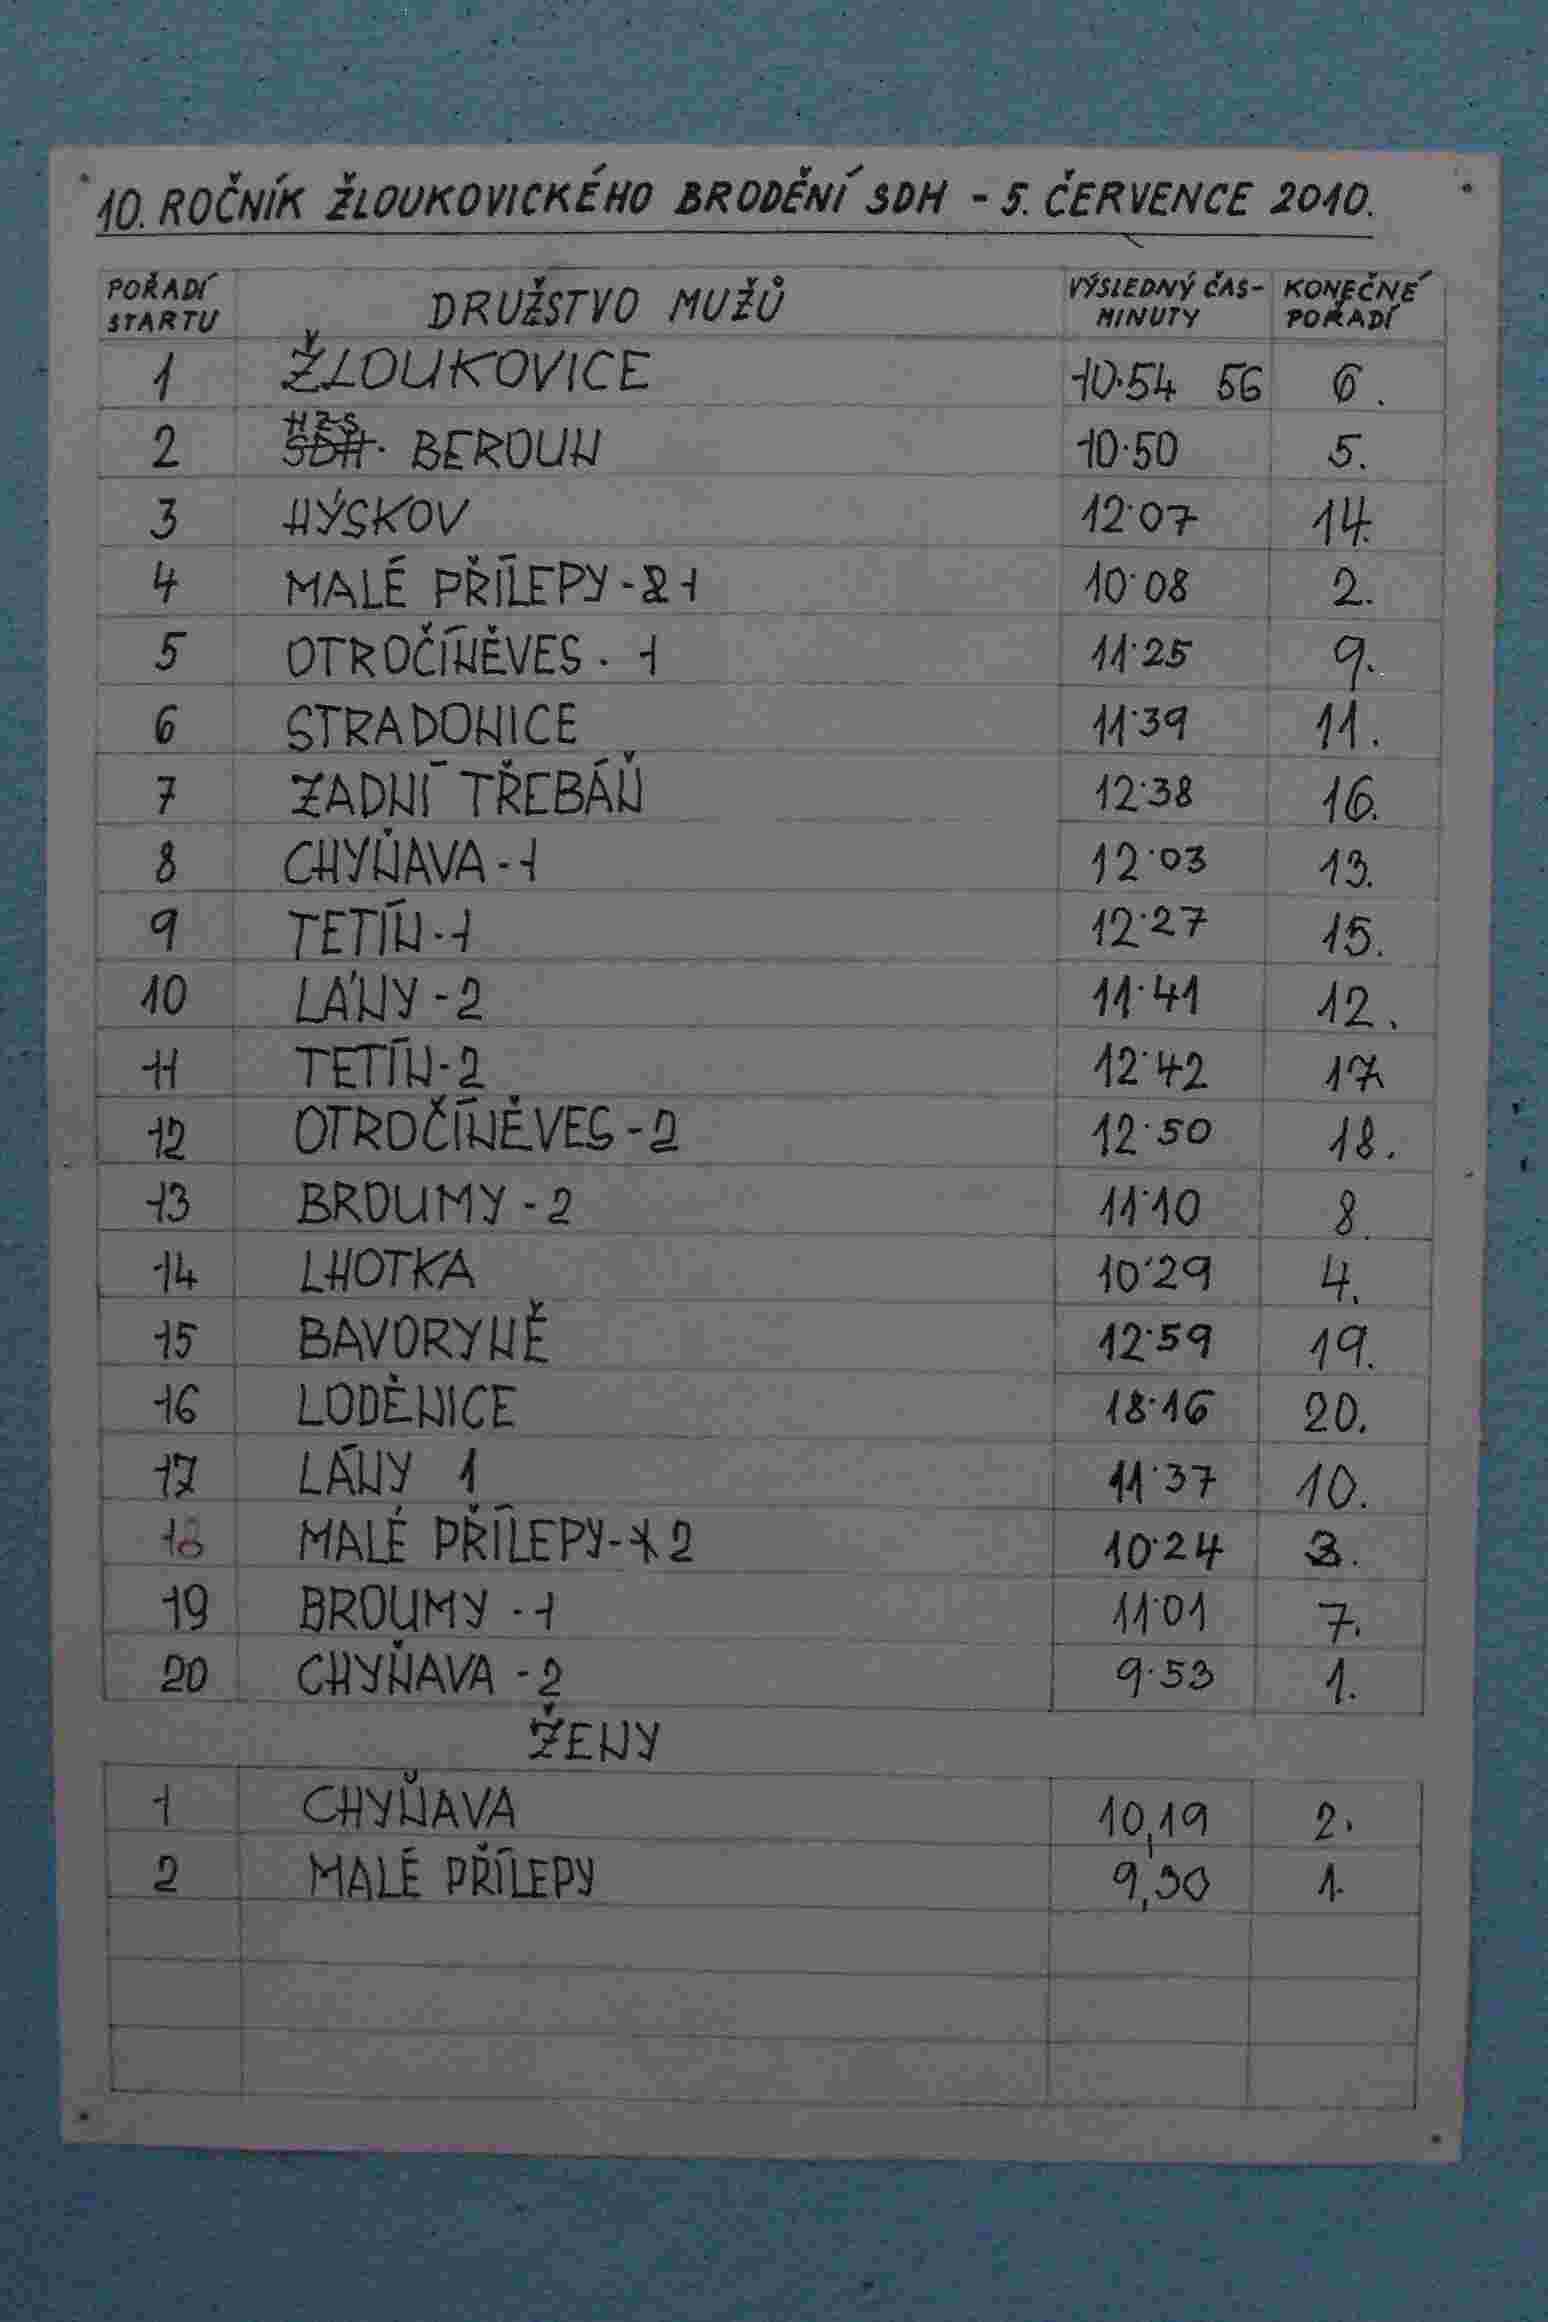 10. ROČNÍK ŽLOUKOVICKÉHO BRODĚNÍ SDH - 5. ČERVENCE 2010.
POŘADÍ STARTU DRUŽSTVO MUŽŮ VÝSLEDNÝ ČAS- MINUTY KONEČNÉ POŘADÍ
1 ŽLOUKOVICE 10·54 56 6.
2 HZS SDH· BEROUN 10·50 5.
3 HÝSKOV 12·07 14.
4 MALÉ PŘÍLEPY - 2 1 10·08 2.
5 OTROČÍNĚVES · 1 11·25 9.
6 STRADONICE 11·39 11.
7 ZADNÍ TŘEBÁŇ 12·38 16.
8 CHYŇAVA - 1 12·03 13.
9 TETÍN · 1 12·27 15.
10 LÁNY - 2 11·41 12.
11 TETÍN - 2 12·42 17
12 OTROČÍNĚVES - 2 12·50 18.
13 BROUMY - 2 11·10 8.
14 LHOTKA 10·29 4.
15 BAVORYNĚ 12·59 19.
16 LODĚNICE 18·16 20.
17 LÁNY 1 11·37 10.
18 MALÉ PŘÍLEPY - 1 2 10·24 3.
19 BROUMY - 1 11·01 7.
20 CHYŇAVA - 2 9·53 1.
ŽENY
1 CHYŇAVA 10,19 2.
2 MALÉ PŘÍLEPY 9,30 1.